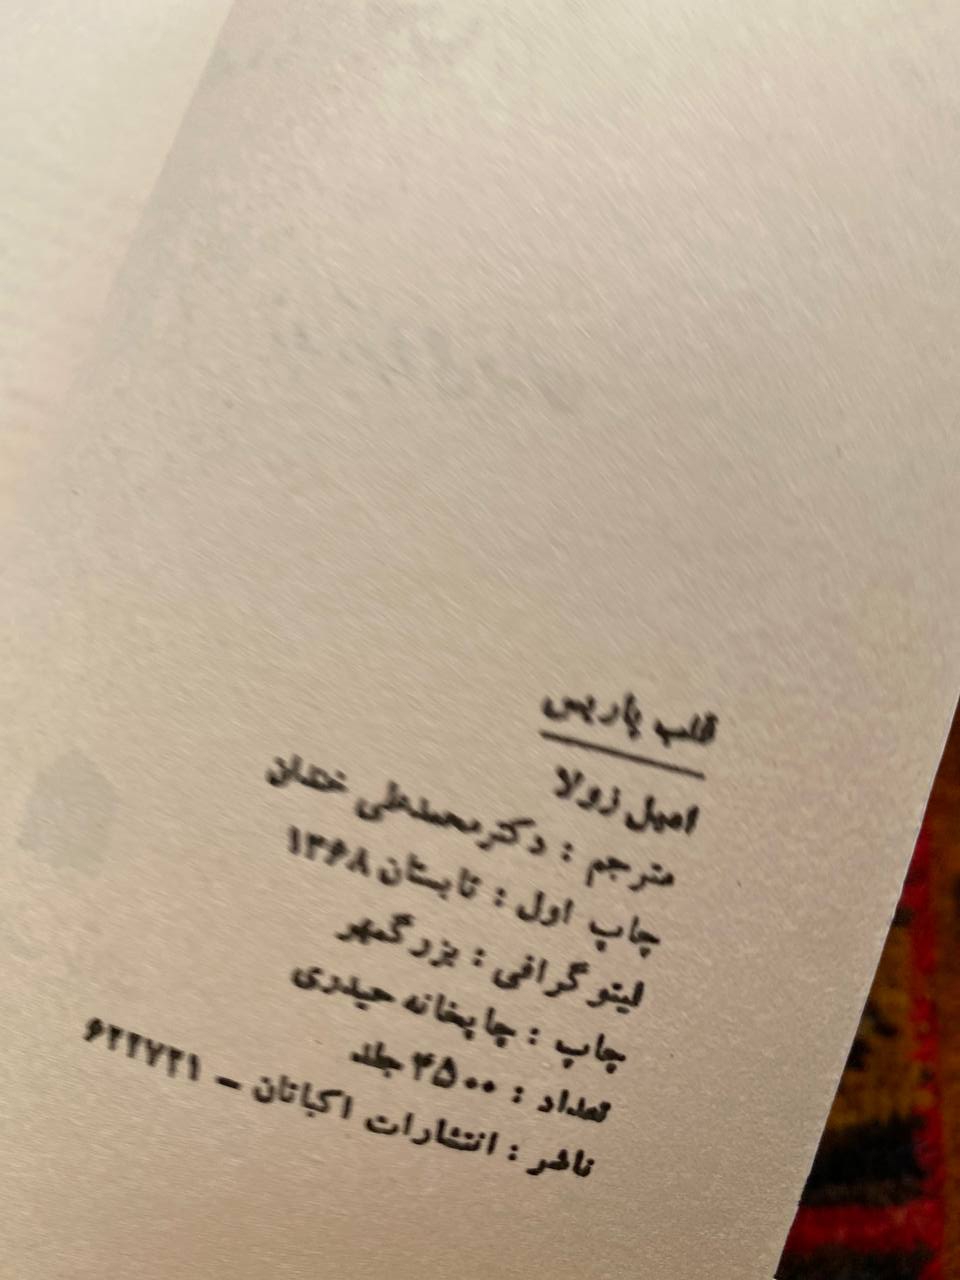 قلب پاریس
امیل زولا
مترجم : دکتر محمدعلی خندان
چاپ اول : تابستان ۱۳۶۸
لیتوگرافی : بزرگمهر
چاپ : چاپخانه حیدری
تعداد : ۴۵۰۰ جلد
ناشر : انتشارات اکباتان –